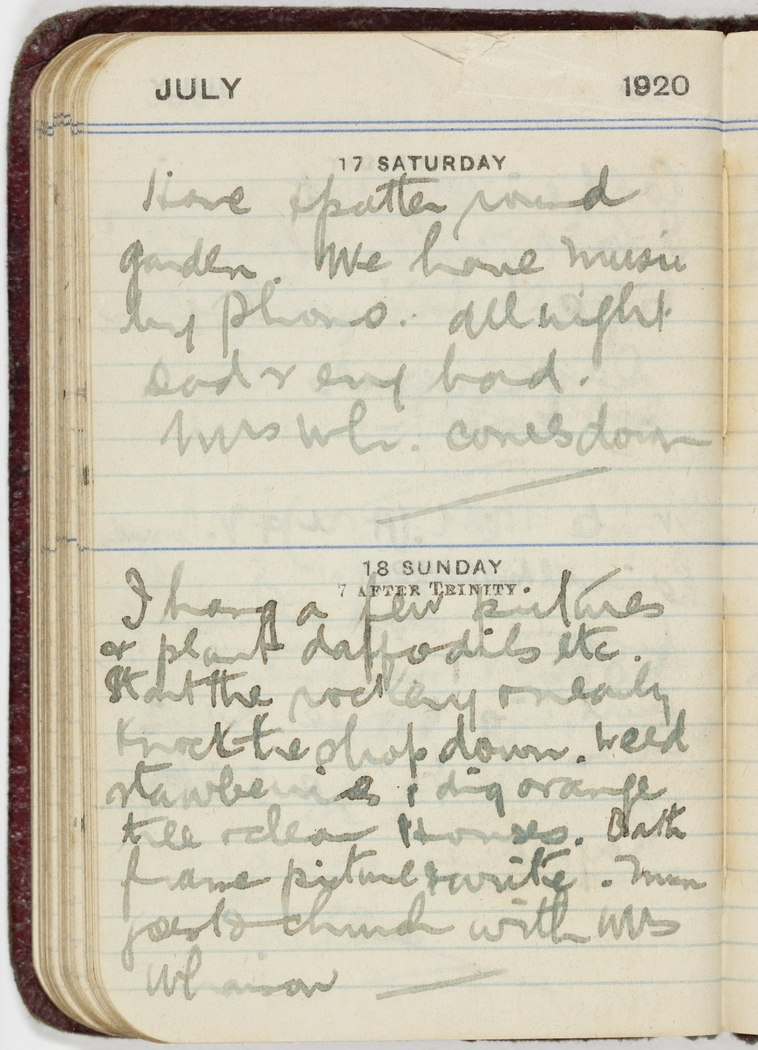 JULY 1920
17 SATURDAY
Have spatter round
garden. We have music
by phono. all night
sad & hard.
Mrs Wh. comes down
18 SUNDAY
7 AFTER TRINITY
I hang a few pictures
& plant daffodils etc.
Start the rockery & nearly
knock the shop down. Weed
strawberries & dig orange
tree & clean Houses. Bath
frame picture & write. Mum
goes to church with Mrs